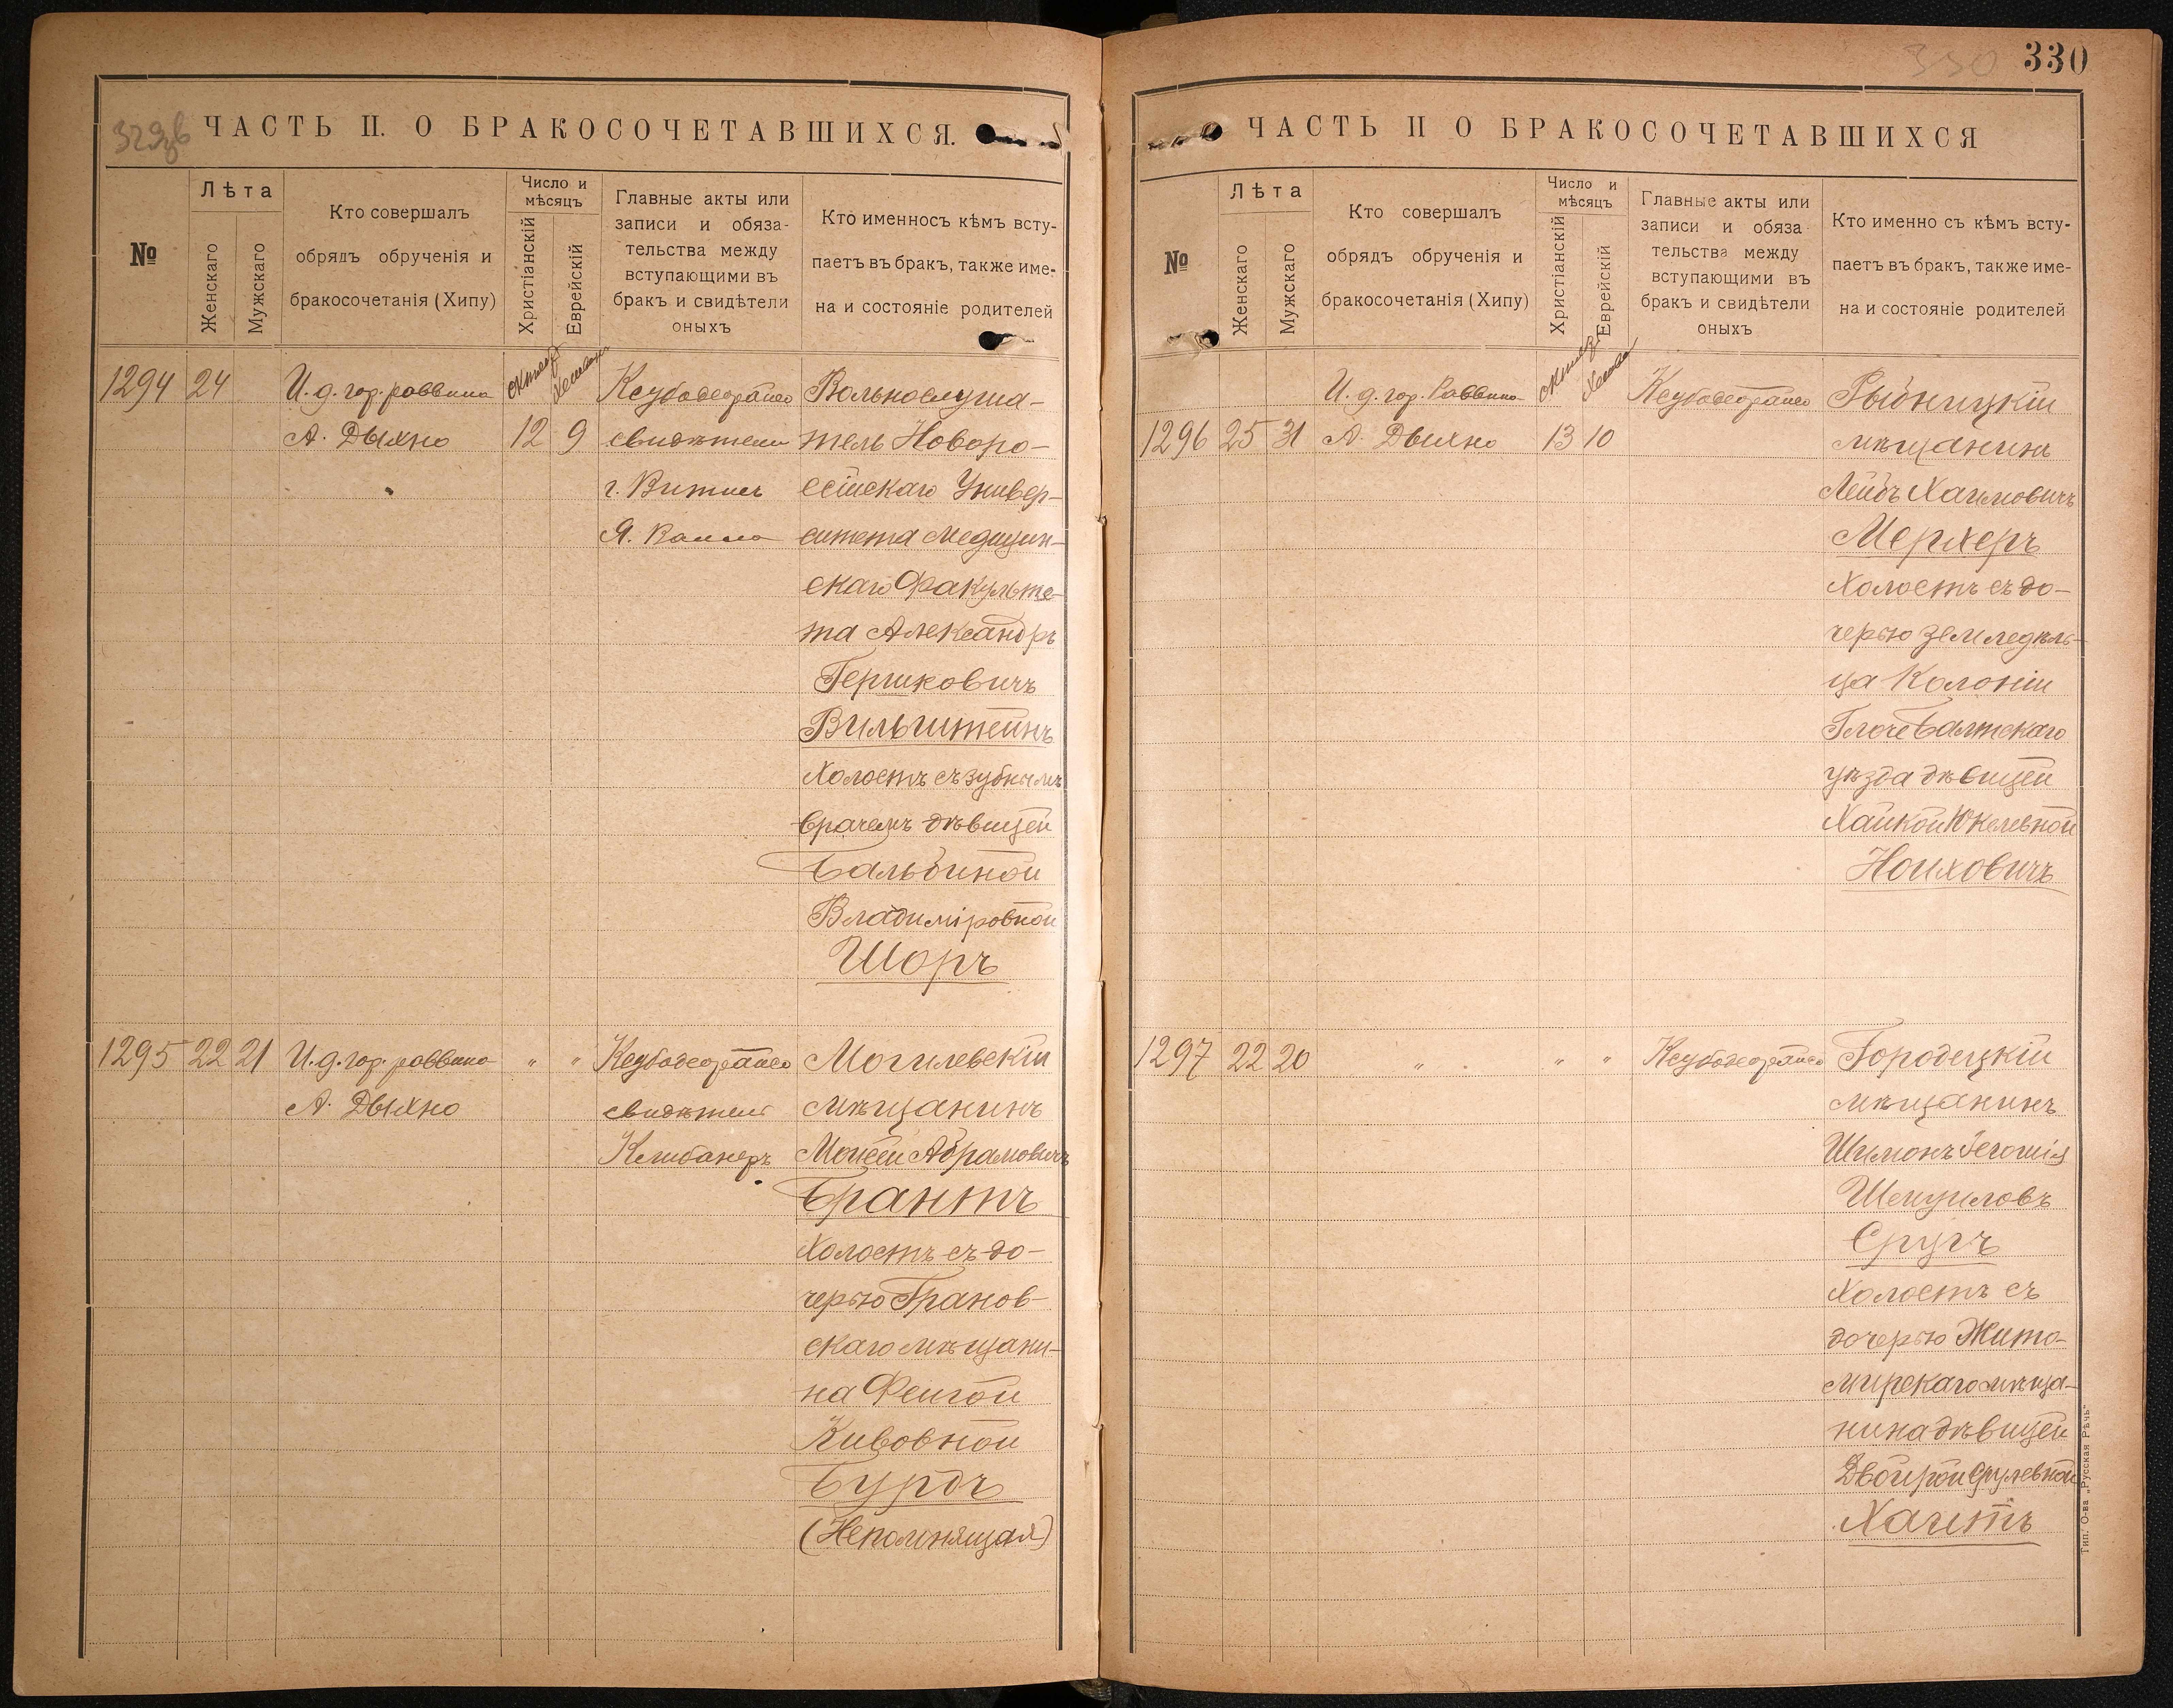 330
330
329зв
ЧАСТЬ II. О БРАКОСОЧЕТАВШИХСЯ.
№
Лѣта
Женскаго
Мужскаго
Кто совершалъ
обрядъ обрученія и
бракосочетанія (Хипу)
Число и
мѣсяцъ
Христіанскій
Еврейскій
Главные акты или
записи и обяза-
тельства между
вступающими въ
бракъ и свидѣтели
оныхъ
Кто именносъ кѣмъ всту-
паетъ въ бракъ, также име-
на и состояніе родителей
1294 24 И. д. гор. раввина Вольнослуша-
А. Дыхно 12 9 свидѣтели тель Новоро-
ссійскаго Универ-
ситета Медицин-
скаго Факульте-
та Александръ
Гершковичъ
Вильштейнъ
Холостъ съ зубнымъ
врачемъ дѣвицей
Бальбиной
Владиміровной
Шоръ
1295 22 21 И. д. гор. раввина " " Могилевскій
А. Дыхно свидѣтели мѣщанинъ
Моисей Абрамовичъ
Брантъ
Холостъ съ до-
черью Гранов-
скаго мѣщани-
на Фейгой
Кивовной
Бурдъ
(Непомнящая)
ЧАСТЬ II О БРАКОСОЧЕТАВШИХСЯ
№
Лѣта
Женскаго
Мужскаго
Кто совершалъ
обрядъ обрученія и
бракосочетанія (Хипу)
Число и
мѣсяцъ
Христіанскій
Еврейскій
Главные акты или
записи и обяза
тельства между
вступающими въ
бракъ и свидѣтели
оныхъ
Кто именно съ кѣмъ всту-
паетъ въ бракъ, также име-
на и состояніе родителей
И. д. гор. Раввина Рыбницкій
1296 25 31 А. Дыхно 13 10 мѣщанинъ
Лейбъ Хаимовичъ
Мерхеръ
Холостъ съ до-
черью земледѣль-
ца Колоніи
Балтскаго
уѣзда дѣвицей
Хайкой Юкелевной
Ноиховичъ
1297 22 20 " " " Городецкій
мѣщанинъ
Шимонъ
Шмуиловъ
Сругъ
Холостъ съ
дочерью Жито-
мирскаго мѣща-
нина дѣвицей
Двойрой Срулевной
Хаитъ
Тип. О-ва „Русская Рѣчь"